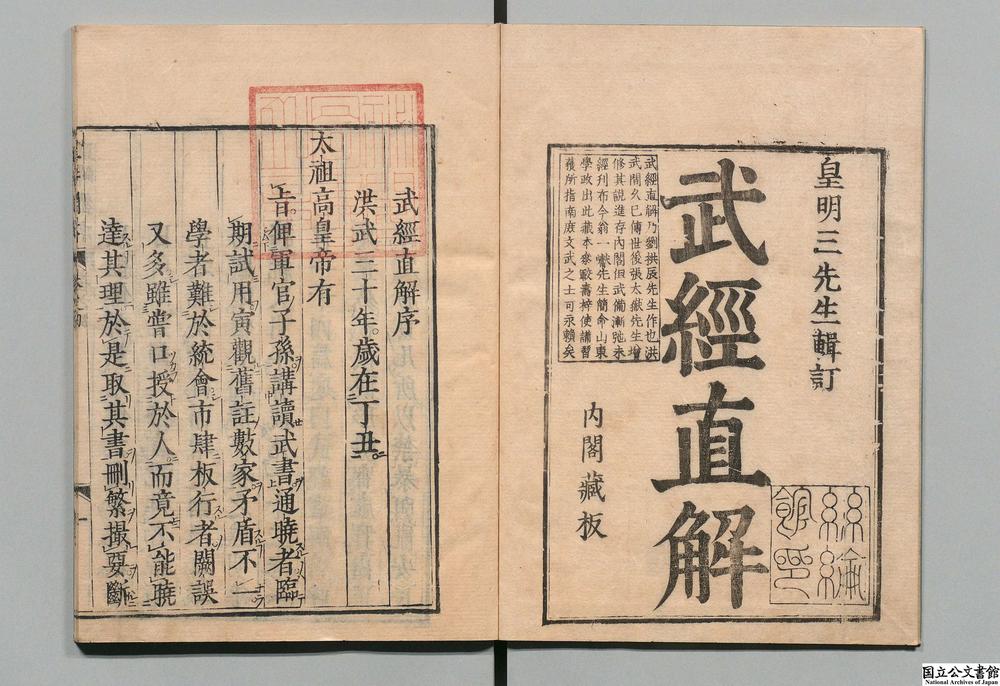 皇明三先生輯訂
武經直解
武經直解乃劉拱辰先生作也洪
武間久已傳世後張太嶽先生增
修其說進存內閣但武備漸弛未
經刊布今翁一𪆓先生簡命山東
學政出此藏本參駮壽梓使講習
者有所指南庶文武之士可永賴矣
內閣藏板
絲綸
館印
武經直解序
洪武三十年歲在丁丑
太祖高皇帝有
旨俾軍官子孫講讀武書通曉者臨
期試用寅觀舊註數家矛盾不一
學者難於統會市肆板行者闕誤
又多雖嘗口授於人而竟不能曉
達其理於是取其書刪繁撮要斷
国立公文書館
National Archives of Japan